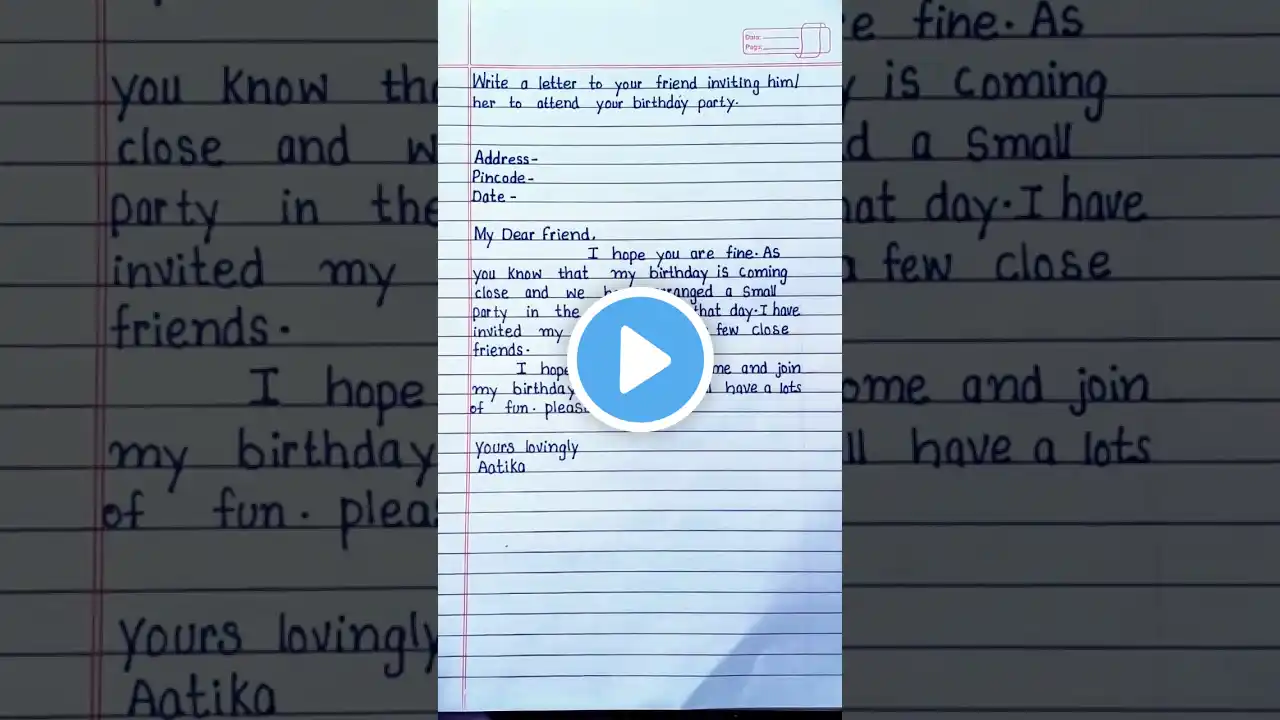 Date:
Page:
Write a letter to your friend inviting him/
her to attend your birthday party.
Address-
Pincode-
Date -
My Dear friend,
I hope you are fine. As
you know that my birthday is coming
close and we a small
party in the that day. I have
invited my few close
friends.
I hope and join
my birthday have a lots
of fun. please
Yours lovingly
Aatika